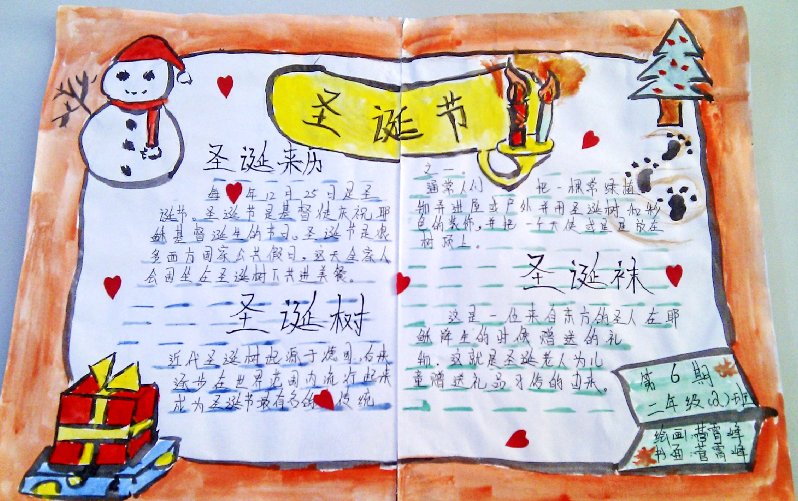 圣诞节
圣诞来历
每年12月25日是圣
诞节。圣诞节是基督徒庆祝耶
稣基督诞生的节日。圣诞节是很
多西方国家公共假日，这天全家人
会团坐在圣诞树下共进美餐。
圣诞树
近代圣诞树起源于德国，后来
逐步在世界范围内流行起来
成为圣诞节最有名的传统
之一。
通常人们一把一棵常绿植
物弄进屋或户外并用圣诞树和彩
色的装饰，并把一个天使或星星放在
树顶上。
圣诞袜
这是一位来自东方的圣人在耶
稣降生的时候赠送的礼
物，这就是圣诞老人为儿
童赠送礼品习俗的由来。
第6期
二年级(3)班
绘画
书画